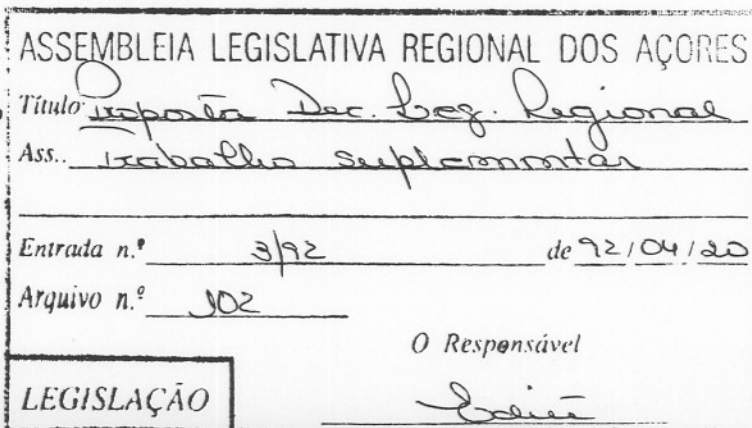 ASSEMBLEIA LEGISLATIVA REGIONAL DOS AÇORES
Título Proposta Dec. Leg. Regional
Ass.. Trabalho suplementar
Entrada n.º 3/92 de 92/04/20
Arquivo n.º 102
O Responsável
LEGISLAÇÃO